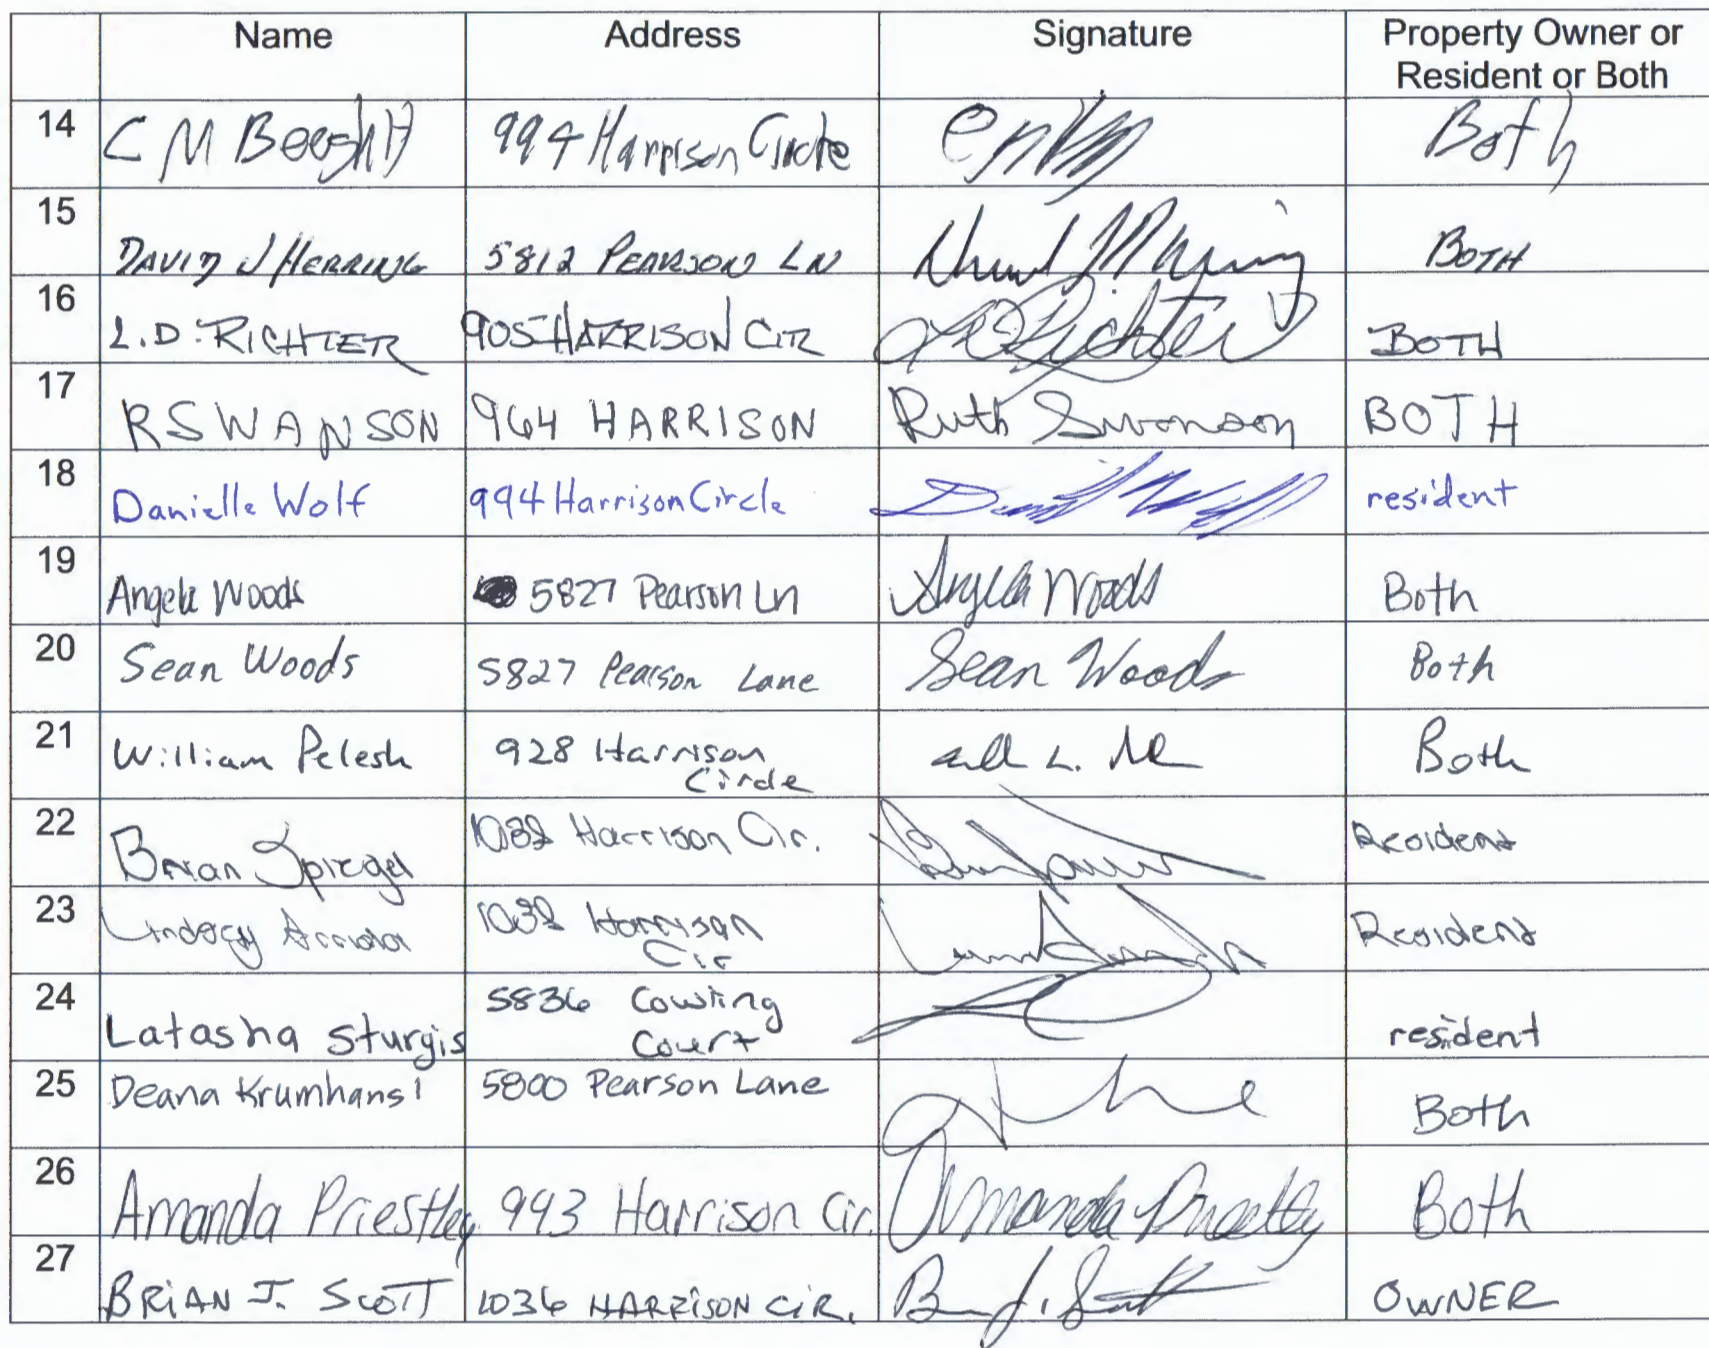 Name Address Signature Property Owner or
Resident or Both
14 C M 994 Harrison Circle Both
15 DAVID J HERRING 5812 PEARSON LN Both
16 L.D. RICHTER 905 HARRISON CIR LD Richter BOTH
17 R SWANSON 964 HARRISON Ruth Swanson BOTH
18 Danielle Wolf 994 Harrison Circle resident
19 Angela Woods 5827 Pearson Ln Angela Woods Both
20 Sean Woods 5827 Pearson Lane Sean Woods Both
21 William Pelesh 928 Harrison
Circle Both
22 Brian Spiegel 1032 Harrison Cir. Resident
23 Lindsey 1032 Harrison
Cir Resident
24 Latasha Sturgis 5836 Cowling
Court resident
25 Deana Krumhansl 5800 Pearson Lane Both
26 Amanda Priestley 943 Harrison Cir. Amanda Priestley Both
27 BRIAN J. SCOTT 1036 HARRISON CIR. OWNER